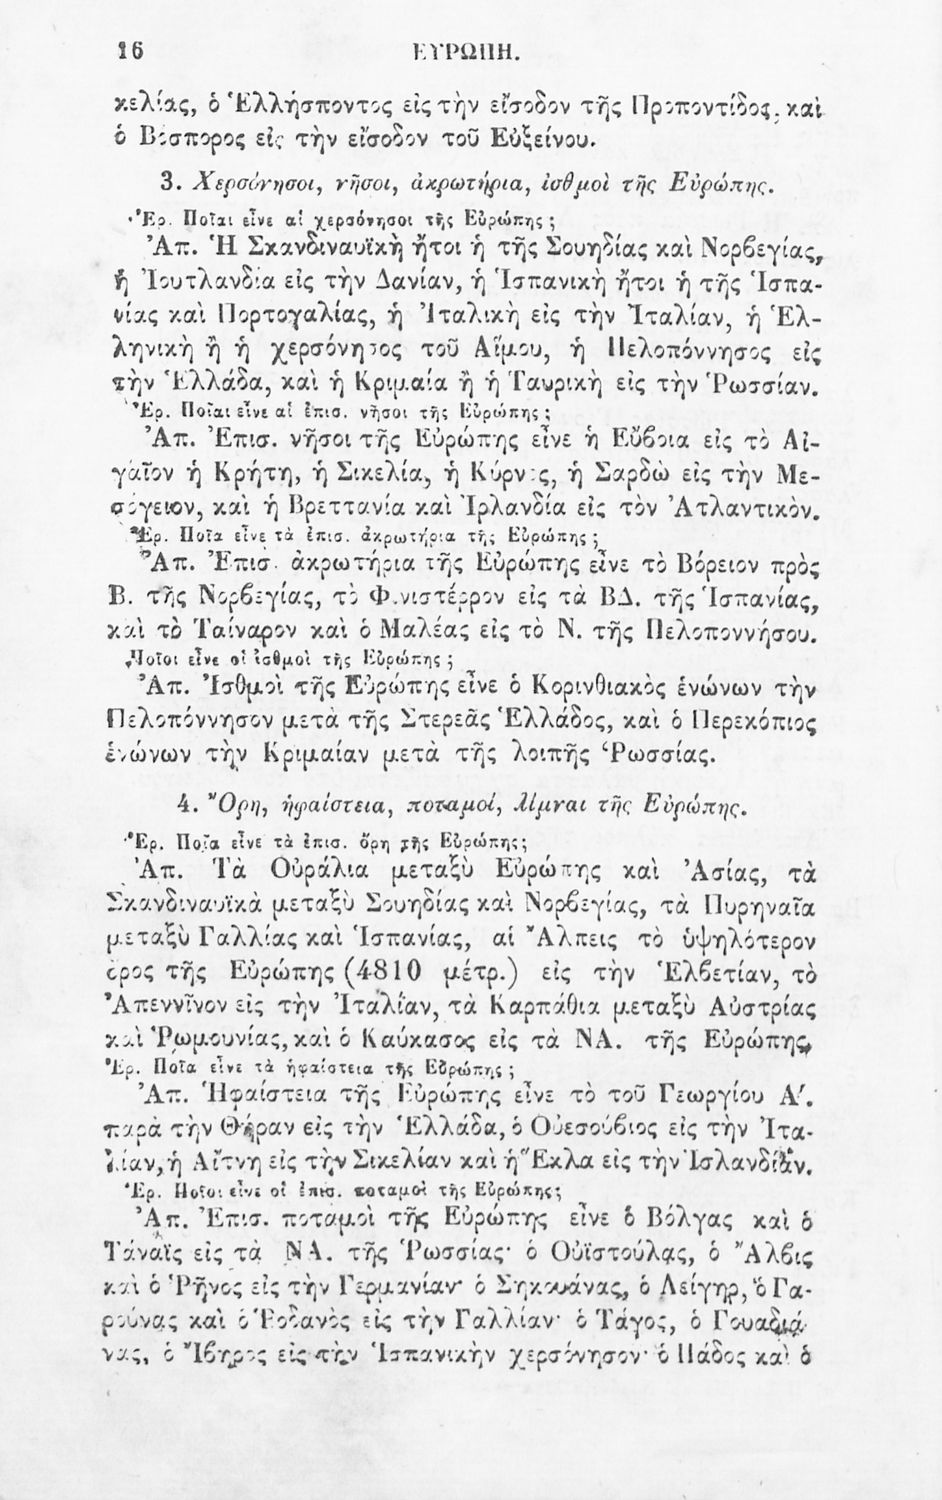 16 ΕΥΡΩΠΗ.
κελίας, ὁ Ἑλλήσποντος εἰς τὴν εἴσοδον τῆς Προποντίδος, καὶ
ὁ Βόσπορος εἰς τὴν εἴσοδον τοῦ Εὐξείνου.
3. Χερσόνησοι, νῆσοι, ἀκρωτήρια, ἰσθμοὶ τῆς Εὐρώπης.
Ἐρ. Ποῖαι εἶνε αἱ χερσόνησοι τῆς Εὐρώπης;
Ἀπ. Ἡ Σκανδιναυϊκὴ ἤτοι ἡ τῆς Σουηδίας καὶ Νορβεγίας,
ἡ Ἰουτλανδία εἰς τὴν Δανίαν, ἡ Ἱσπανικὴ ἤτοι ἡ τῆς Ἱσπα-
νίας καὶ Πορτογαλίας, ἡ Ἰταλικὴ εἰς τὴν Ἰταλίαν, ἡ Ἑλ-
ληνικὴ ἢ ἡ χερσόνησος τοῦ Αἵμου, ἡ Πελοπόννησος εἰς
τὴν Ἑλλάδα, καὶ ἡ Κριμαία ἢ ἡ Ταυρικὴ εἰς τὴν Ῥωσσίαν.
Ἐρ. Ποῖαι εἶνε αἱ ἐπισ. νῆσοι τῆς Εὐρώπης;
Ἀπ. Ἐπισ. νῆσοι τῆς Εὐρώπης εἶνε ἡ Εὔβοια εἰς τὸ Αἰ-
γαῖον ἡ Κρήτη, ἡ Σικελία, ἡ Κύρνος, ἡ Σαρδὼ εἰς τὴν Με-
σόγειον, καὶ ἡ Βρεττανία καὶ Ἰρλανδία εἰς τὸν Ἀτλαντικὸν.
Ἐρ. Ποῖα εἶνε τὰ ἐπισ. ἀκρωτήρια τῆς Εὐρώπης;
Ἀπ. Ἐπισ. ἀκρωτήρια τῆς Εὐρώπης εἶνε τὸ Βόρειον πρὸς
Β. τῆς Νορβεγίας, τὸ Φινιστέρρον εἰς τὰ ΒΔ. τῆς Ἱσπανίας,
καὶ τὸ Ταίναρον καὶ ὁ Μαλέας εἰς τὸ Ν. τῆς Πελοποννήσου.
Ποῖοι εἶνε οἱ ἰσθμοὶ τῆς Εὐρώπης;
Ἀπ. Ἰσθμοὶ τῆς Εὐρώπης εἶνε ὁ Κορινθιακὸς ἑνώνων τὴν
Πελοπόννησον μετὰ τῆς Στερεᾶς Ἑλλάδος, καὶ ὁ Περεκόπιος
ἑνώνων τὴν Κριμαίαν μετὰ τῆς λοιπῆς Ῥωσσίας.
4. Ὄρη, ἡφαίστεια, ποταμοί, λίμναι τῆς Εὐρώπης.
Ἐρ. Ποῖα εἶνε τὰ ἐπισ. ὄρη τῆς Εὐρώπης;
Ἀπ. Τὰ Οὐράλια μεταξὺ Εὐρώπης καὶ Ἀσίας, τὰ
Σκανδιναυϊκὰ μεταξὺ Σουηδίας καὶ Νορβεγίας, τὰ Πυρηναῖα
μεταξὺ Γαλλίας καὶ Ἱσπανίας, αἱ Ἄλπεις τὸ ὑψηλότερον
ὄρος τῆς Εὐρώπης (4810 μέτρ.) εἰς τὴν Ἑλβετίαν, τὸ
Ἀπεννῖνον εἰς τὴν Ἰταλίαν, τὰ Καρπάθια μεταξὺ Αὐστρίας
καὶ Ῥωμουνίας, καὶ ὁ Καύκασος εἰς τὰ ΝΑ. τῆς Εὐρώπης,
Ἐρ. Ποῖα εἶνε τὰ ἡφαίστεια τῆς Εὐρώπης;
Ἀπ. Ἡφαίστεια τῆς Εὐρώπης εἶνε τὸ τοῦ Γεωργίου Α΄.
παρὰ τὴν Θήραν εἰς τὴν Ἑλλάδα, ὁ Οὐεσούβιος εἰς τὴν Ἰτα-
λίαν, ἡ Αἴτνη εἰς τὴν Σικελίαν καὶ ἡ Ἔκλα εἰς τὴν Ἰσλανδίαν.
Ἐρ. Ποῖοι εἶνε οἱ ἐπισ. ποταμοὶ τῆς Εὐρώπης;
Ἀπ. Ἐπισ. ποταμοὶ τῆς Εὐρώπης εἶνε ὁ Βόλγας καὶ ὁ
Τάναϊς εἰς τὰ ΝΑ. τῆς Ῥωσσίας· ὁ Οὐϊστούλας, ὁ Ἄλβις
καὶ ὁ Ῥῆνος εἰς τὴν Γερμανίαν· ὁ Σηκουάνας, ὁ Λείγηρ, ὁ Γα-
ρούνας καὶ ὁ Ῥοδανὸς εἰς τὴν Γαλλίαν· ὁ Τάγος, ὁ Γουαδιά-
νας, ὁ Ἴβηρος εἰς τὴν Ἱσπανικὴν χερσόνησον· ὁ Πάδος καὶ ὁ